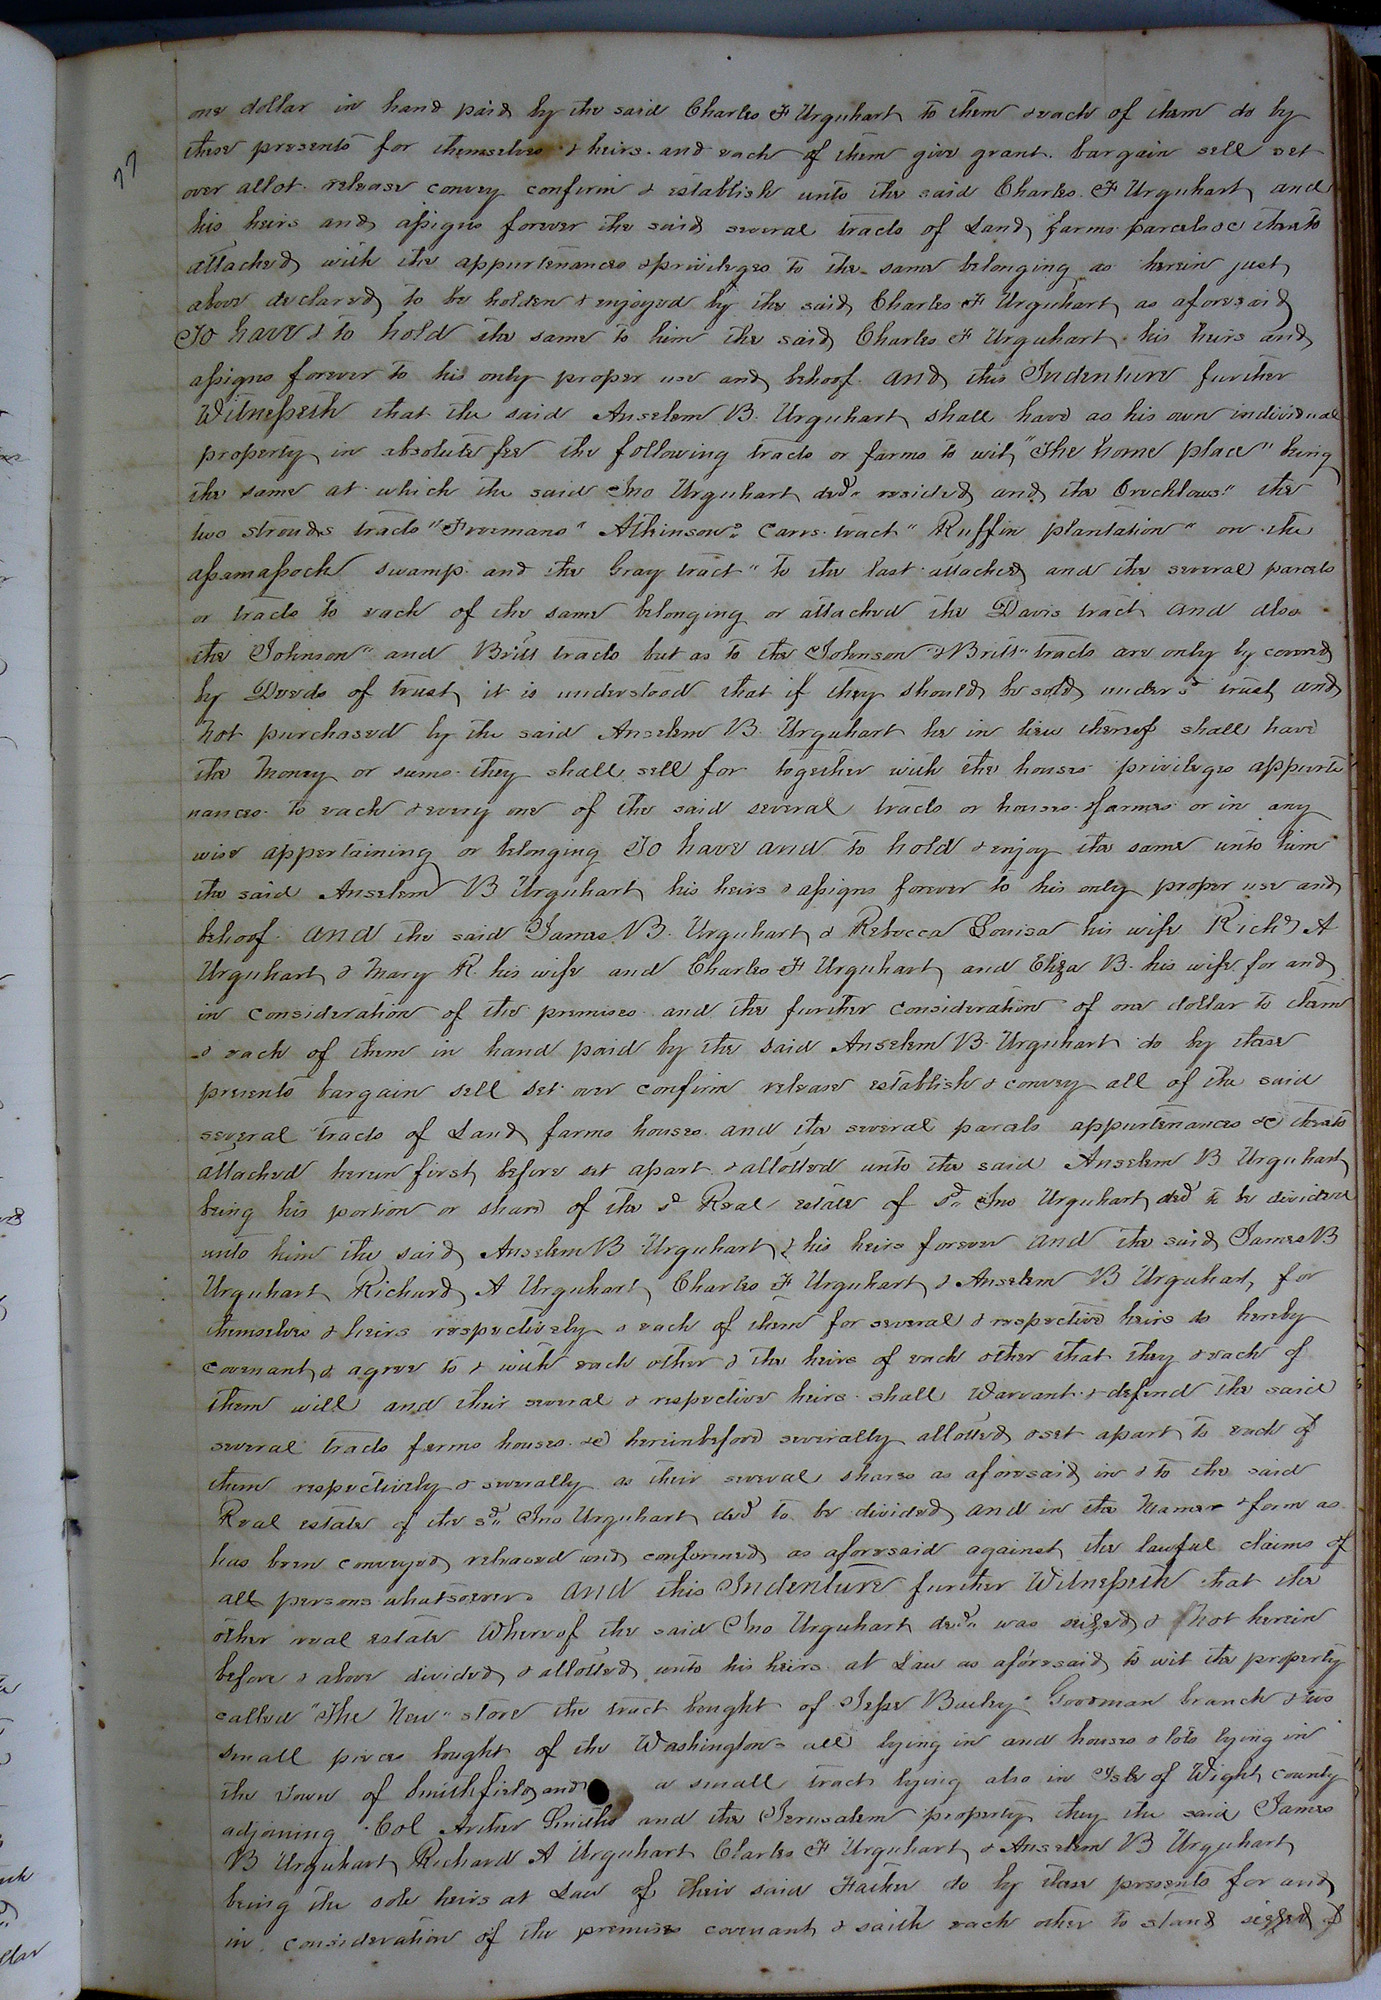 77
one dollar in hand paid by the said Charles F Urquhart to them & each of them do by
these presents for themselves & heirs and each of them give grant bargain sell set
over allot release convey confirm & establish unto the said Charles F Urquhart and
his heirs and assigns forever the said several tracts of Land, farms parcels &c thereto
attached with the appurtenances & privileges to the same belonging as herein just
above declared to be holden & enjoyed by the said Charles F Urquhart as aforesaid
To have & to hold the same to him the said Charles F Urquhart his heirs and
assigns forever to his only proper use and behoof. and this Indenture further
Witnesseth that the said Anselem B. Urquhart shall have as his own individual
property in absolute fee the following tracts or farms to wit, "The home place" being
the same at which the said Jno Urquhart decd. resided and the Crechlows" the
two strouds tracts "Freemans" Atkinsons Carrs tract" Ruffin plantation" on the
assamassock swamp and the Gray tract" to the last attached and the several parcels
or tracts to each of the same belonging or attached the Davis tract and also
the Johnson" and Britt tracts but as to the Johnson" & Britt" tracts are only by covered
by Deeds of trust it is understood that if they should be sold under sd trust and
not purchased by the said Anselem B. Urquhart he in lieu thereof shall have
the Money or sums they shall sell for together with the houses privileges appurte
nances to each & every one of the said several tracts or houses & farms or in any
wise appertaining or belonging To have and to hold & enjoy the same unto him
the said Anselem B Urquhart his heirs & assigns forever to his only proper use and
behoof. and the said James B. Urquhart & Rebecca Louisa his wife Richd A
Urquhart & Mary R. his wife and Charles F Urquhart and Eliza B. his wife for and
in consideration of the premises and the further consideration of one dollar to them
& each of them in hand paid by the said Anselem B. Urquhart do by these
presents bargain sell set over confirm release establish & convey all of the said
several tracts of Land farms houses and the several parcels appurtenances &c thereto
attached herein first before set apart & allotted unto the said Anselem B Urquhart
being his portion or share of the sd Real estate of sd. Jno Urquhart decd to be divided
unto him the said Anselem B Urquhart & his heirs forever and the said James B
Urquhart Richard A Urquhart Charles F Urquhart & Anselem B Urquhart, for
themselves & heirs respectively & each of them for several & respective heirs do hereby
covenant & agree to & with each other & the heirs of each other that they & each of
them will and their several & respective heirs shall Warrant & defend the said
several tracts farms houses &c hereinbefore severally allotted & set apart to each of
them respectively & severally as their several shares as aforesaid in & to the said
Real estate of the sd. Jno Urquhart decd to be divided and in the Maner & form as
has been conveyed released and conformed as aforesaid against the lawful claims of
all persons whatsoever and this Indenture further Witnesseth that the
other real estate Whereof the said Jno Urquhart decd. was seized & not herein
before & above divided & allotted unto his heirs at Law as aforesaid to wit the property
called "The New" store the tract bought of Jesse Bailey" Goodman branch & two
small pieces bought of the Washingtons all lying in and houses & lots lying in
the Town of Smithfield and a small tract lying also in Isle of Wight county
adjoining Col Arther Smiths and the Jerusalem property they the said James
B Urquhart Richard A Urquhart Charles F Urquhart & Anselem B Urquhart
being the sole heirs at Law of their said Father do by these presents for and
in consideration of the premises covenant & saith each other to stand seized of